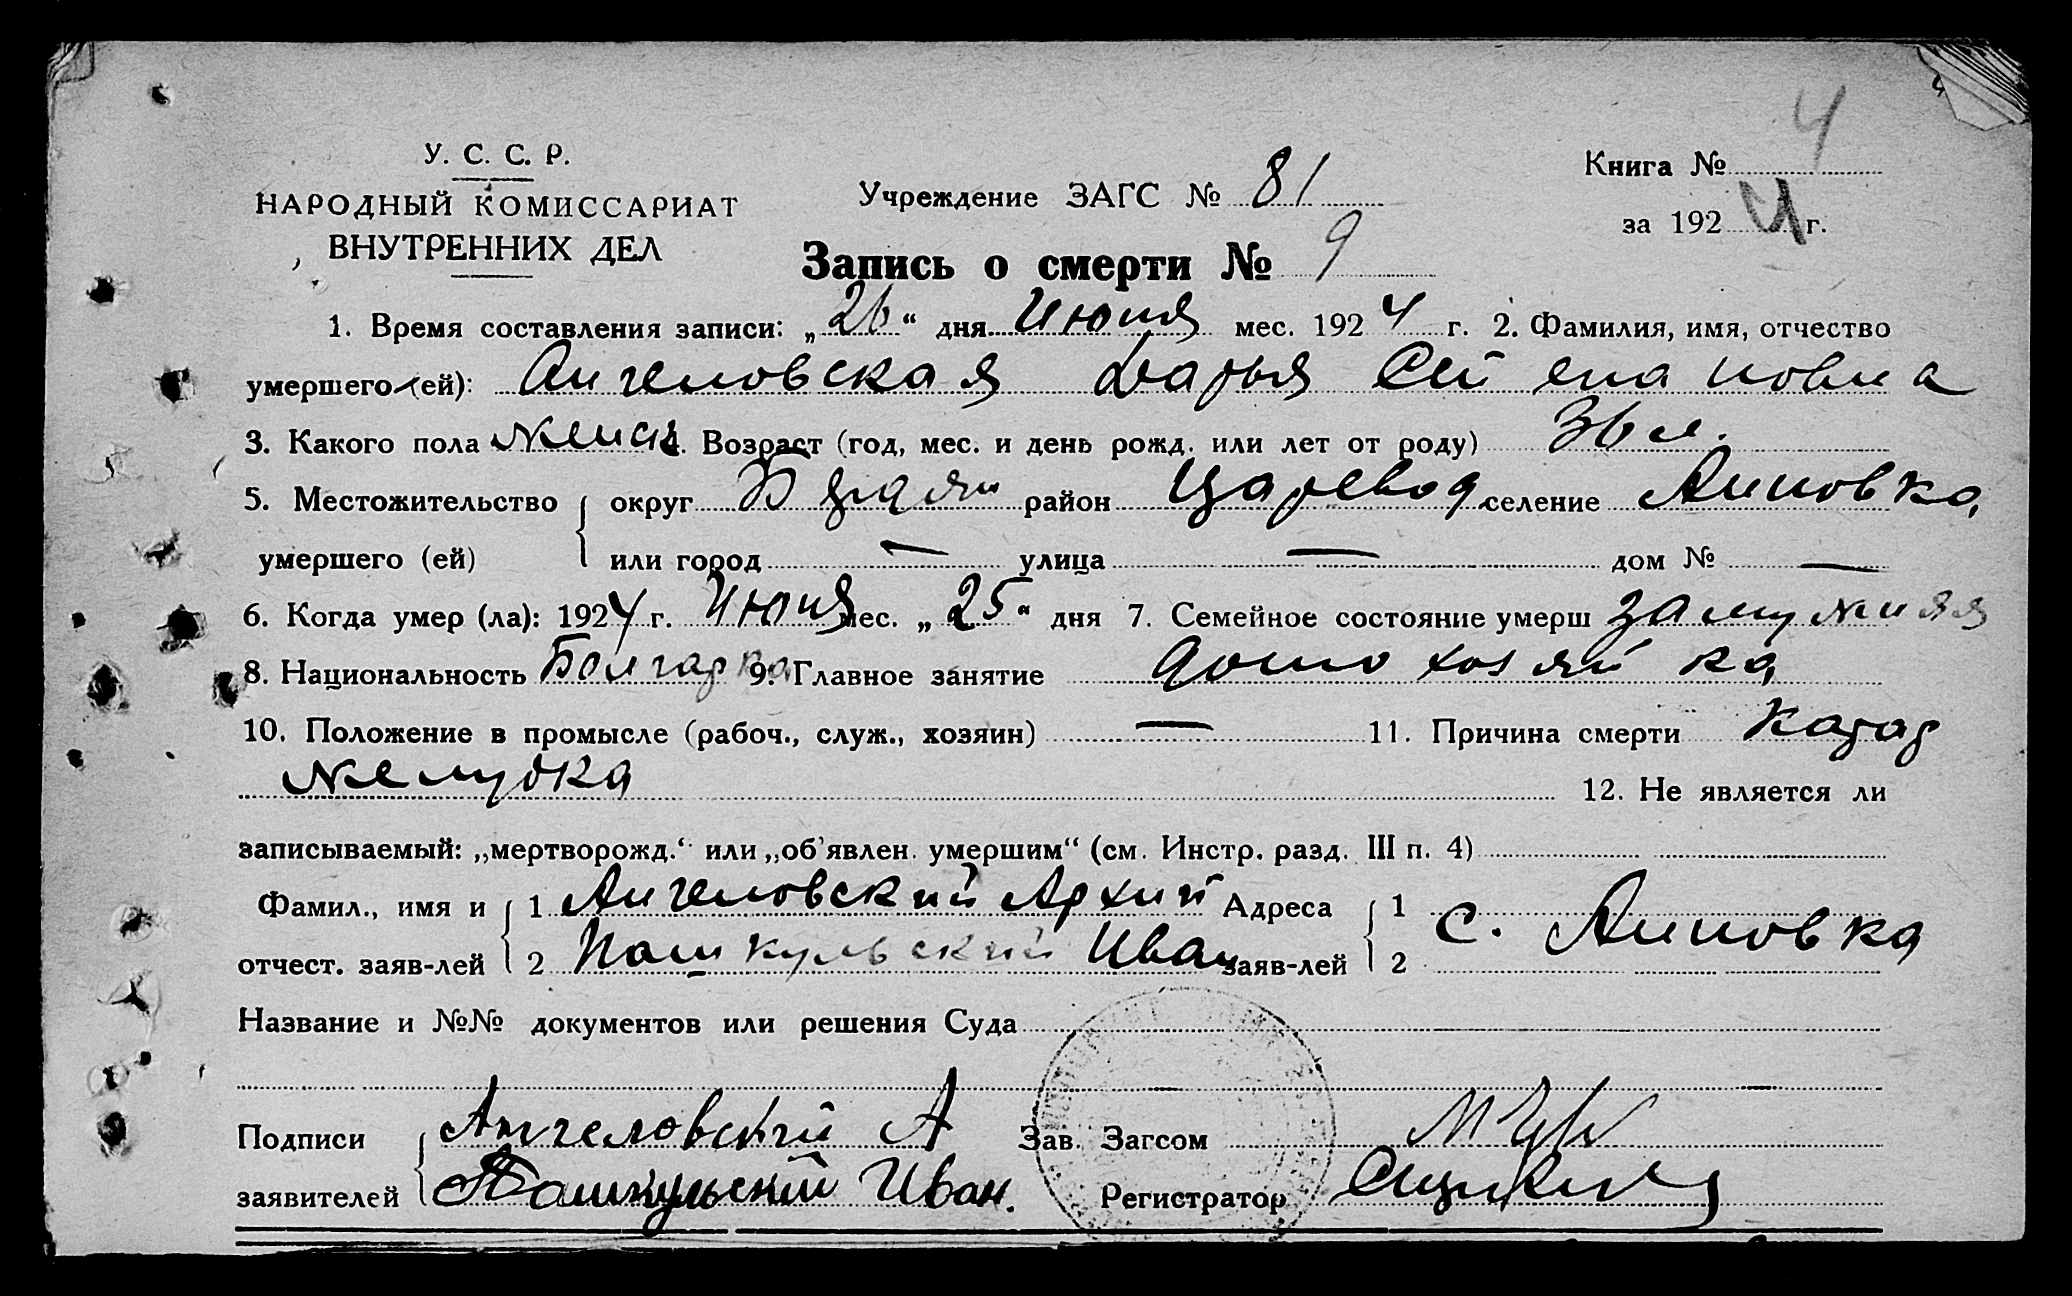 У. С. С. Р.
НАРОДНЫЙ КОМИССАРИАТ
ВНУТРЕННИХ ДЕЛ
Учреждение ЗАГС № 81
Книга № 4
за 1924 г.
Запись о смерти № 9
1. Время составления записи: „26“ дня Июня мес. 1924 г. 2. Фамилия, имя, отчество
умершего (ей): Ангеловская Дарья
3. Какого пола женск 4. Возраст (год, мес. и день рожд. или лет от роду) 36 л.
5. Местожительство округ район Царевод селение Анновка
умершего (ей) или город — улица — дом № —
6. Когда умер (ла): 1924 г. Июня мес. „25“ дня 7. Семейное состояние умерш замужняя
8. Национальность Болгарка 9. Главное занятие домохозяйка
10. Положение в промысле (рабоч., служ., хозяин) — 11. Причина смерти катар
желудка 12. Не является ли
записываемый: „мертворожд.“ или „об'явлен. умершим“ (см. Инстр. разд. III п. 4)
Фамил., имя и 1 Ангеловский Архип Адреса 1 с. Анновка
отчест. заяв-лей 2 Пашкульский Иван заяв-лей 2
Название и №№ документов или решения Суда
Подписи Ангеловский А Зав. Загсом
заявителей Пашкульский Иван. Регистратор